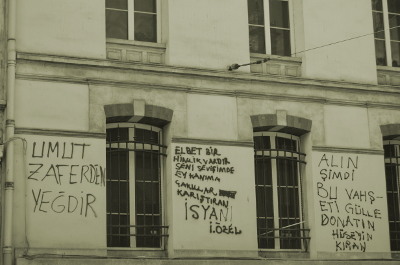 UMUT
ZAFERDEN
YEGDİR
ELBET BİR
HINLIK VARDIR
SENİ SEVİŞİMDE
EY KANIMA
ÇAKILLAR
KARIŞTIRAN
İSYAN!
İ.ÖZEL
ALIN
ŞİMDİ
BU VAHŞ-
ETİ GÜLLE
DONATIN
HÜSEYİN
KIRAN